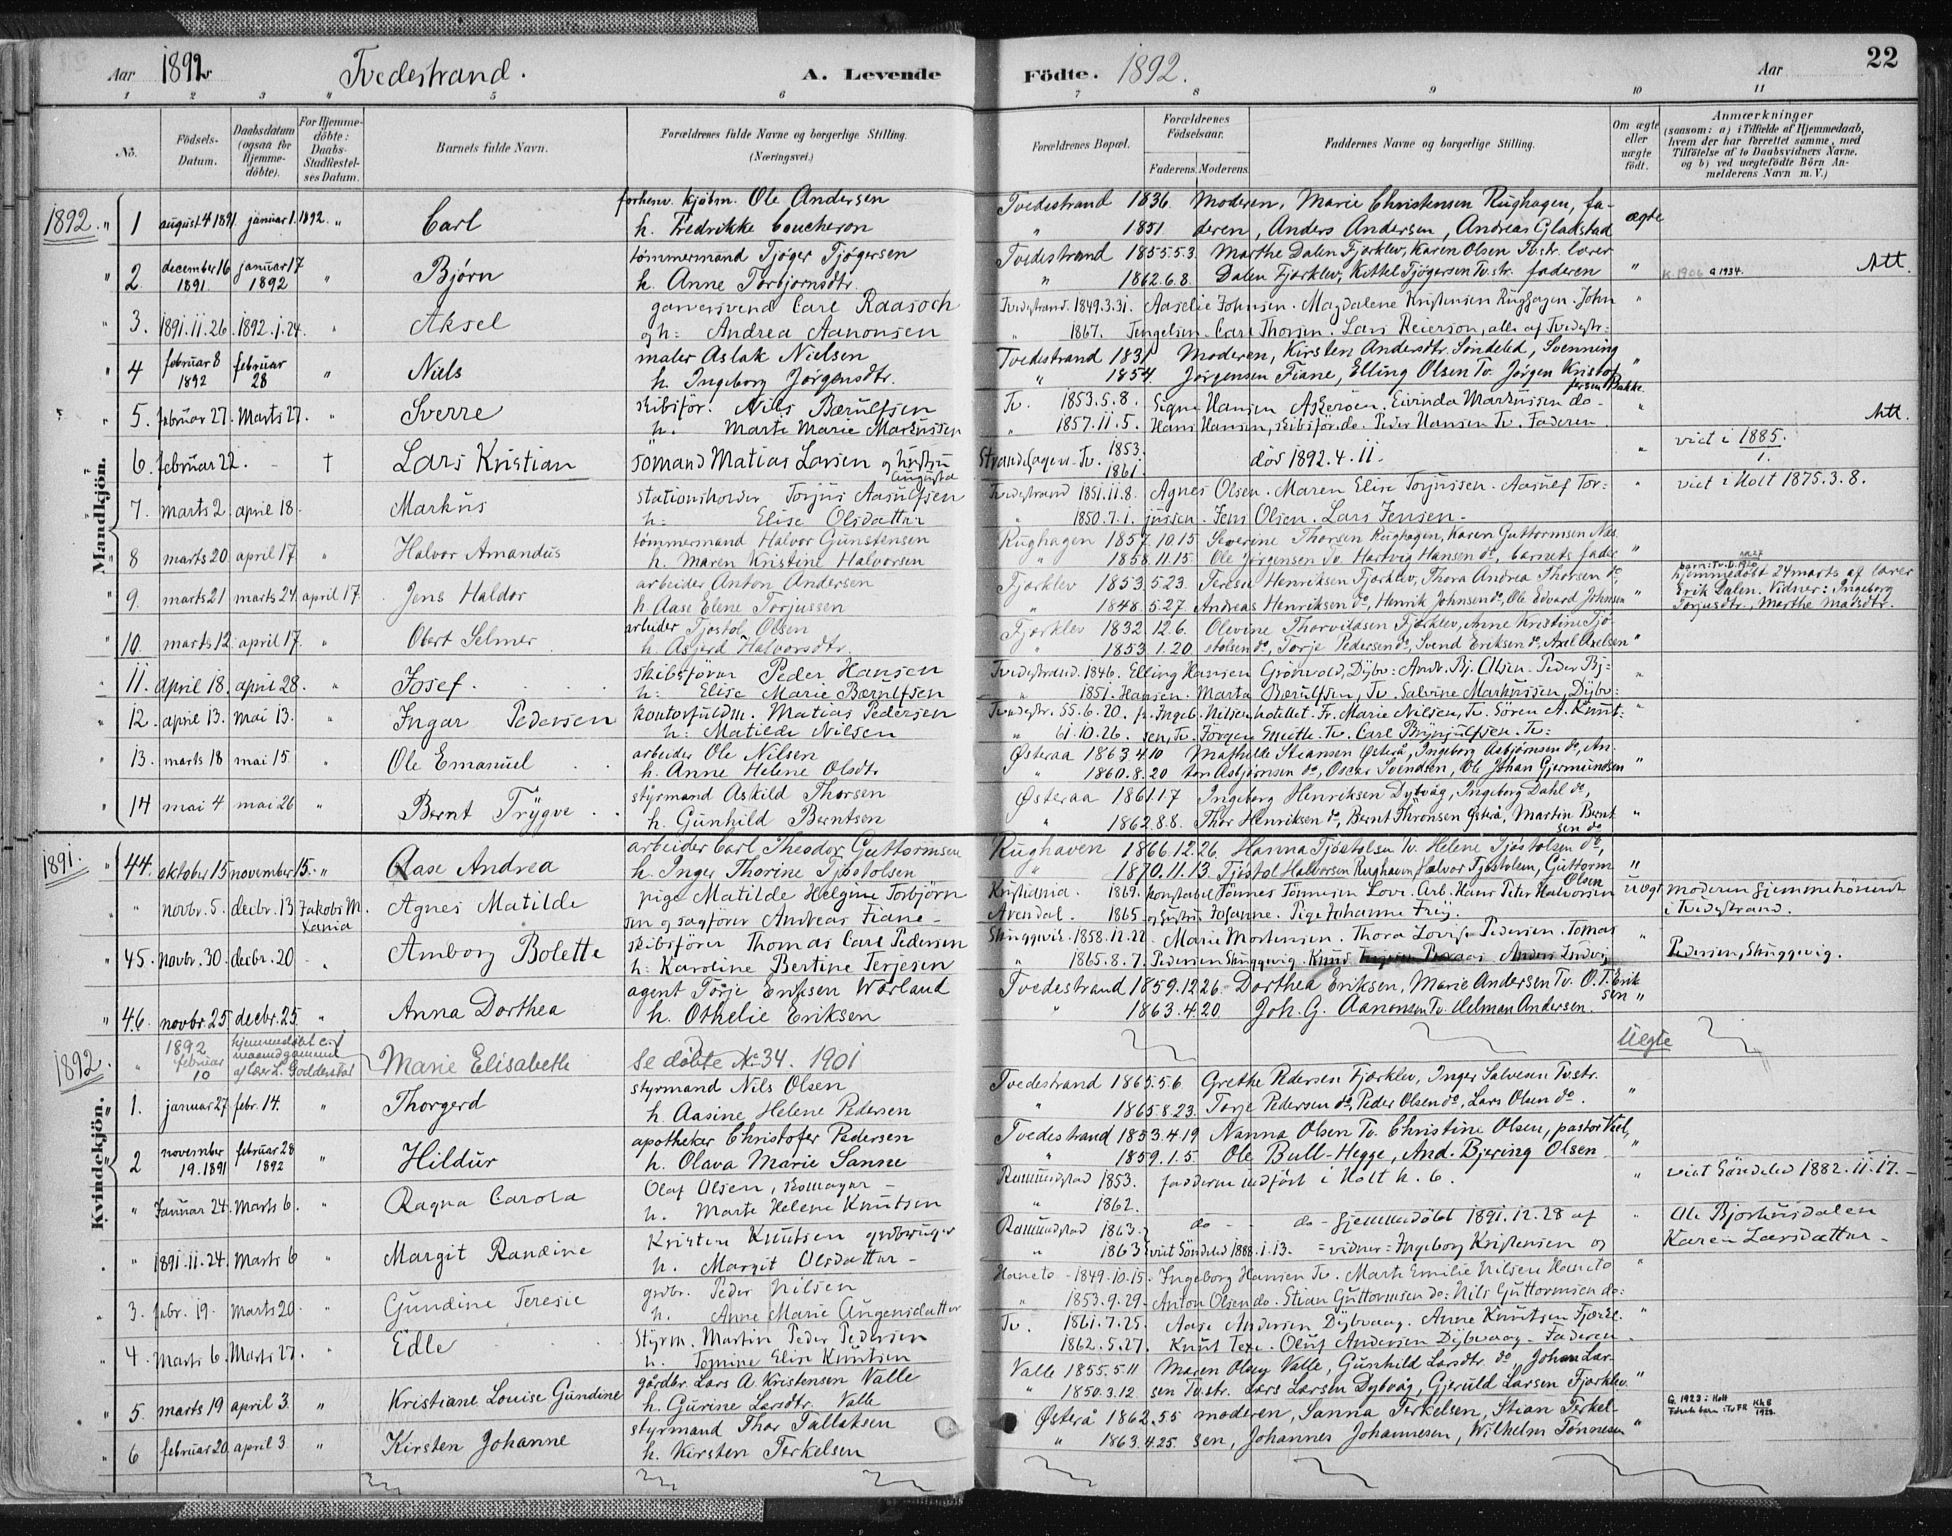 Aar 1892 Tvedestrand. A. Levende Födte. 1892. Aar 22
1 2 3 " 5 6 7 8 9 10 11
No.
Födsels-Datum.
Daabsdatum (ogsaa for Hjemme-döbte).
For Hjemme-döbte: Daabs-Stadfæstel-ses Datum.
Barnets fulde Navn.
Forældrenes fulde Navne og borgerlige Stilling.
(Næringsvei.)
Forældrenes Bopæl.
Forældrenes Födselsaar.
Faderens. Moderens.
Faddernes Navne og borgerlige Stilling.
Om ægte eller uægte födt.
Anmærkninger
(saasom: a) i Tilfælde af Hjemmedaab, hvem der har forrettet samme, med Tilföielse af to Daabsvidners Navne, og b) ved uægtefödte Börn An-melderens Navn m. V.)
Mandkjön.
1892. 1 august 4 1891 januar 1. 1892. " Carl forhenv. kjöbm. Ole Andersen Tvedestrand 1836. Moderen, Marie Christensen Rughagen, fa- ægte
h. Fredrikke Coucheron " 1851 deren, Anders Andersen, Andreas Gladstad
2. december 16 1891. januar 17 1892 " Bjørn tömmermand Tjøger Tjøgersen Tvedestrand 1855.5.3. Marthe Dalen Fjærklev, Karen Olsen Tv.str. lærer "
h. Anne Torbjørnsdtr. " 1862.6.8. Dalen Fjærklev, Kittel Tjøgersen Tv.str. faderen K. 1906 G 1934. Att.
3. 1891.11.26. 1892.1.24. " Aksel garversvend Carl Raasoch Tvedestrand. 1849.3.31. Aaselie Johnsen. Magdalene Kristensen Rughagen. John "
og h: Andrea Aanonsen " 1867. Tengelsen. Carl Thorsen. Lars Reierson, alle af Tvedestr:
4 februar 8 1892 februar 28 " Niels maler Aslak Nielsen Tvedestrand 1831 Moderen, Kirsten Andersdtr. Söndeled, Svenning "
h. Ingeborg Jørgensdtr. " 1854. Jørgensen Fiane, Elling Olsen Tv. Jørgen Kristof
fersen Bakke.
5. februar 27. Marts 27. " Sverre skibsför. Nils Bærulfsen Tv. 1853.5.8. Signe Hansen Askerøen. Eivinda Markussen do- "
h. Marte Marie Markussen " 1857.11.5. Hans Hansen, skibsför. do. Peder Hansen Tv. Faderen. Att.
6. februar 22. - † Lars Kristian sömand Matias Larsen og hustru Strandhagen. Tv. 1853. död 1892.4.11. " viet i 1885.
Augusta 1861. 1.
7. marts 2. april 18. Markus stationsholder Torjus Aasulfsen Tvedestrand 1851.11.8. Agnes Olsen. Maren Elise Torjussen. Aasulf Tor: " viet i Holt 1875.3.8.
h: Elise Olsdatter " 1850.7.1. jussen. Jens Olsen. Lars Jensen.
8 marts 20 april 17. " Halvor Amandus tömmermand Halvor Gunstensen Rughagen 1857.10.15 Severine Thorsen Rughagen, Karen Guttormsen Næs
h. Maren Kristine Halvorsen " 1858.11.15. Ole Jørgensen Tv. Hartvig Hansen do, barnets fader "
9. marts 21 marts 24 april 17. Jens Haldor arbeider Anton Andersen Fjærklev 1853.5.23. Teresie Henriksen Fjærklev, Thora Andrea Thorsen do, hjemmedöbt 24 marts af lærer
h. Aase Elene Torjussen " 1848.5.27. Andreas Henriksen do, Henrik Johnsen do, Ole Edvard Johnsen " Erik Dalen. Vidner: Ingeborg
Torjusdtr, Marthe Madsdtr.
10. marts 12. april 17. " Obert Selmer arbeider Tjostol Olsen Fjærklev 1832. 12.6. Olevine Thorvildsen Fjærklev, Anne Kristine Tjö-
h. Asgjerd Halvorsdtr. " 1853.1.20 stolsen do, Torje Pedersen do, Svend Eriksen do, Axel Axelsen "
11. April 18. april 28. " Josef. skibsförer Peder Hansen Tvedestrand. 1846. Elling Hansen Grönvold, Dybv: Andr. Bj. Olsen. Peder Bj: "
h: Elise Marie Bærulfsen " 1851. Hansen. Marta Bærulfsen, Tv. Salvine Markussen, Dybv:
12. april 13. mai 13. " Ingar Pedersen kontorfuldm. Matias Pedersen Tvedestr. 55.6.20. fr. Ingeb. Nilsen hotellet. Fr. Marie Nilsen, Tv. Sören A. Knut: "
h: Matilde Nilsen " 61.10.26. sen, Tv. Jörgen Smith. Tv. Carl Brynjulfsen. Tv:
13. marts 18 mai 15 " Ole Emanuel arbeider Ole Nilsen Østeraa 1863 4.10 Mathilde Stiansen Østerå, Ingeborg Asbjørnsen do, An-
h. Anne Helene Olsdtr " 1860.8.20 ton Asbjørnsen do, Oscar Svendsen, Ole Johan Gjermundsen "
14 mai 4 mai 26 " Bernt Trygve styrmand Askild Thorsen Østeraa 1861.1.7 Ingeborg Henriksen Dybvåg, Ingeborg Dahl do,
h. Gunhild Berntsen " 1862.8.8. Thor Henriksen do, Bernt Thronsen Østerå, Martin Bernt "
sen do
Kvindekjön.
1891. 44. oktober 15 november 15. " Aase Andrea arbeider Carl Theodor Guttormsen Rughaven 1866.12.26. Hanna Tjöstolsen Tv. Helene Tjøstolsen do,
h. Inger Thorine Tjøstolsen " 1870.11.13. Tjøstol Halvorsen Rughaven, Halvor Tjøstolsen, Guttorm "
Olsen
" novbr. 5. decbr. 13 Jakobs M. Xania Agnes Matilde pige Matilde Helgine Torbjörn Kristiania. 1869. konstabel Tönnes Tönnesen Lovr. Arb. Hans Peter Halvorsen uægt moderen hjemmehörende
sen og sagförer Andreas Fiane - Arendal. 1865 og hustru Josanne. Pige Johanne Frey. i Tvedestrand.
45. novbr. 30. decbr. 20 " Amborg Bolette skibsförer Thomas Carl Pedersen Skuggevik. 1858.12.22. Marie Mortensen. Thora Lovise Pedersen. Tomas "
h: Karoline Bertine Terjesen " 1865.8.7. Pedersen Skuggevig. Knud Anders Ludvig Pedersen, Skuggevig.
46. novbr. 25 decbr. 25. " Anna Dorthea agent Törje Eriksen Wærland Tvedestrand 1859.12.26. Dorthea Eriksen, Marie Andersen Tv. O. T. Erik
h. Othelie Eriksen " 1863.4.20 Joh. G. Aanonsen Tv. Helman Andersen. sen "
1892. " 1892 februar 10 hjemmedöbt maanedgammel af lær L. Godderstad Marie Elisabeth Se döbte No 34. 1901 Uegte
1. januar 27 febr. 14. " Thorgerd styrmand Nils Olsen Tvedestrand 1865.5.6. Grethe Pedersen Fjærklev, Inger Salvesen Tv.str.
h. Aasine Helene Pedersen " 1865.8.23. Torje Pedersen do, Peder Olsen do, Lars Olsen do. "
2 november 19.1891 februar 28 1892 " Hildur apotheker Christofer Pedersen Tvedestrand 1853.4.19 Nanna Olsen Tv. Christine Olsen, pastor Kiel,
h. Olava Marie Sanne " 1859.1.5. Ole Bull-Hegge, And. Bjering Olsen "
" Januar 24. Marts 6. " Ragna Carola Olaf Olsen, skomager - Rammundstad 1853. faddere indfört i Holt k. 6. " viet Söndeled 1882.11.17. -
h. Marte Helene Knutsen " 1862.
" 1891.11.24. Marts 6 " Margit Randine Kristen Knutsen grdbruger Rammundstad 1863. do - - do - hjemmedöbt 1891.12.28 af " Ole Bjorhusdalen
h. Margit Olsdatter - " 1863 viet Söndeled 1888.1.13. = vidner = Ingeborg Kristensen og Karen Larsdatter -
3. febr. 19. Marts 20. " Gundine Teresie grdbr. Peder Nilsen Haneto - 1849.10.15. Ingeborg Hansen Tv. Marte Emilie Nilsen Haneto "
h. Anne Marie Augensdatter " 1853.9.29. Anton Olsen do. Stian Guttormsen do: Nils Guttormsen do:
4. Marts 6. Marts 27. " Edle Styrm. Martin Peder Pedersen Tv. 1861.7.25. Aase Andersen Dybvaag. Anne Knutsen Fjærkl. "
h. Tomine Elise Knutsen 1862.5.27. Knut Texe. Oluf Andersen Dybvaag. Faderen.
5. marts 19 april 3. " Kristiane Louise Gundine gårdbr. Lars A. Kristensen Valle Valle 1855.5.11 Maren Olsen Valle, Gunhild Larsdtr. do, Johan Lar-
h. Gurine Larsdtr. Valle " 1850.3.12. sen Tv.str. Lars Larsen Dybvåg, Gjeruld Larsen Fjærklev. "
6 februar 20. april 3. " Kirsten Johanne styrmand Thor Tallaksen Østerå 1862.5.5 moderen, Sanna Terkelsen, Stian Terkel- G. 1923 i Holt
h. Kirsten Terkelsen " 1863.4.25. sen, Johannes Johannesen, Wilhelm Tønnesen "